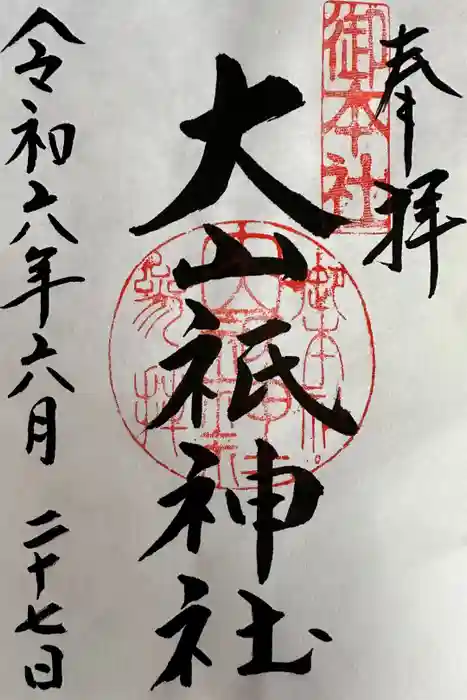 奉拝
御本社
大山祇神社
令和六年六月二十七日